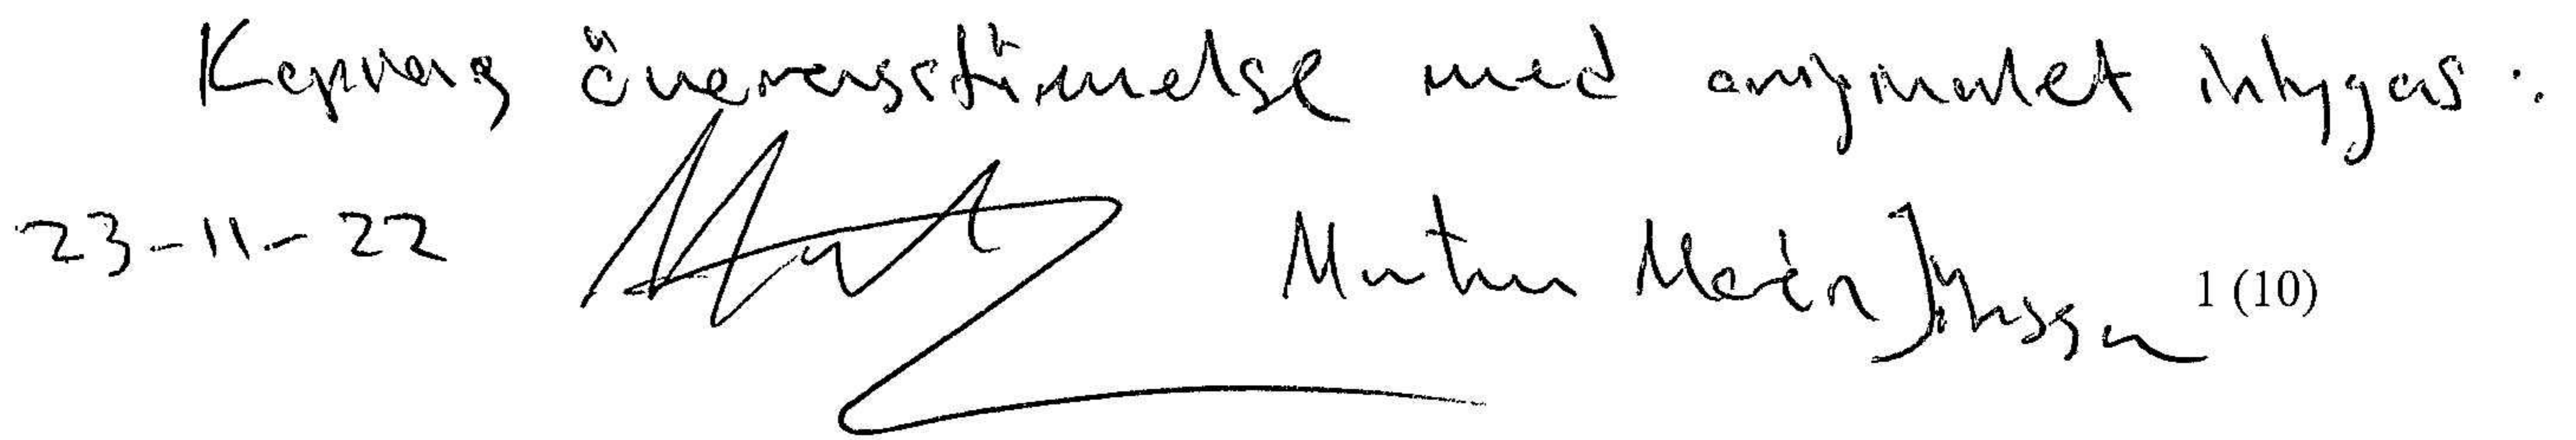 Kopians överensstämmelse med originalet intygas:
23-11-22 Martin Morén Jönsson 1 (10)